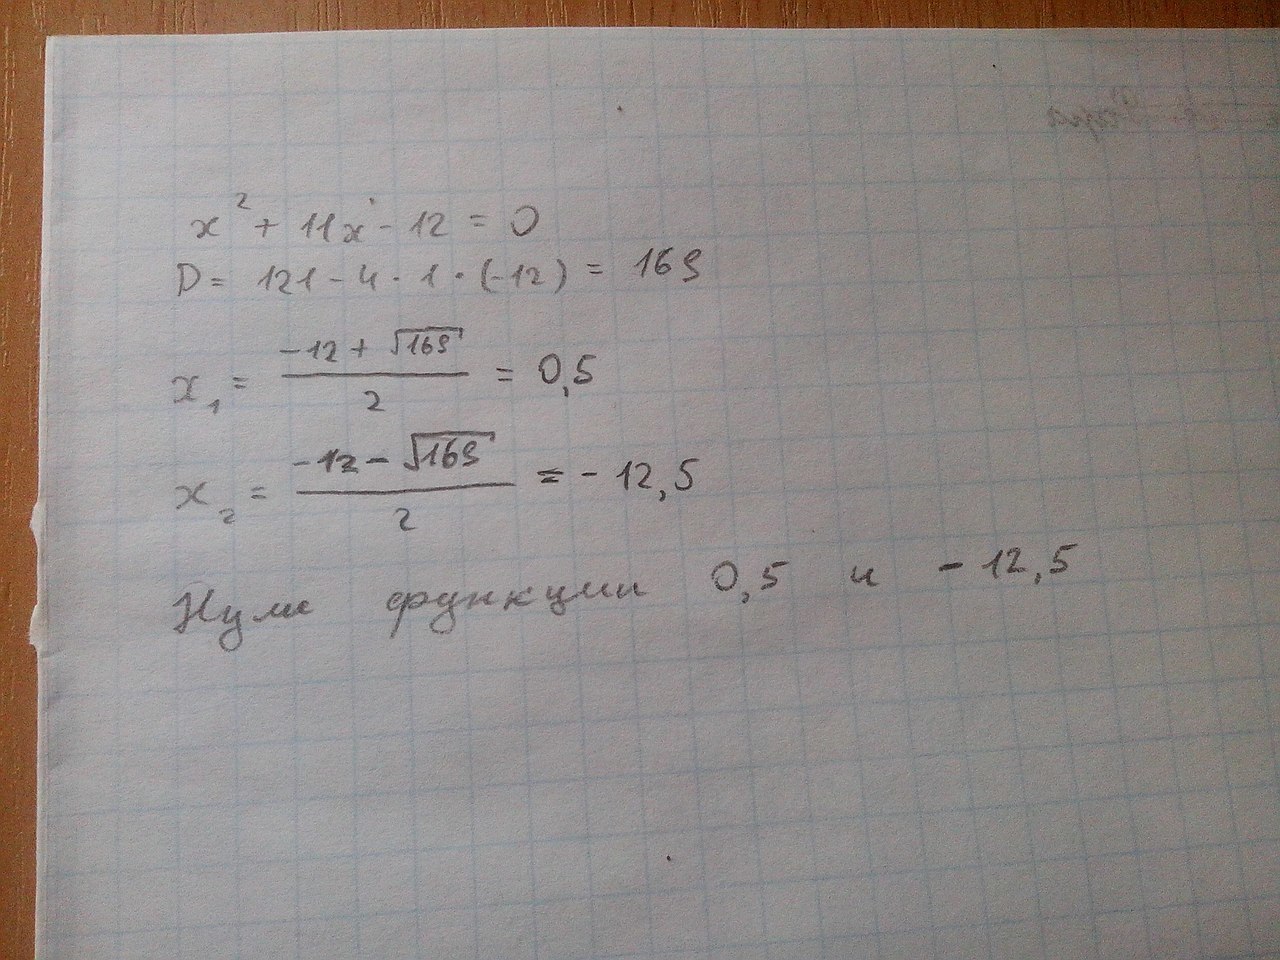 x² + 11x - 12 = 0
D = 121 - 4 · 1 · (-12) = 169
x₁ = (-12 + √169)/2 = 0,5
x₂ = (-12 - √169)/2 = -12,5
Нули функции 0,5 и -12,5